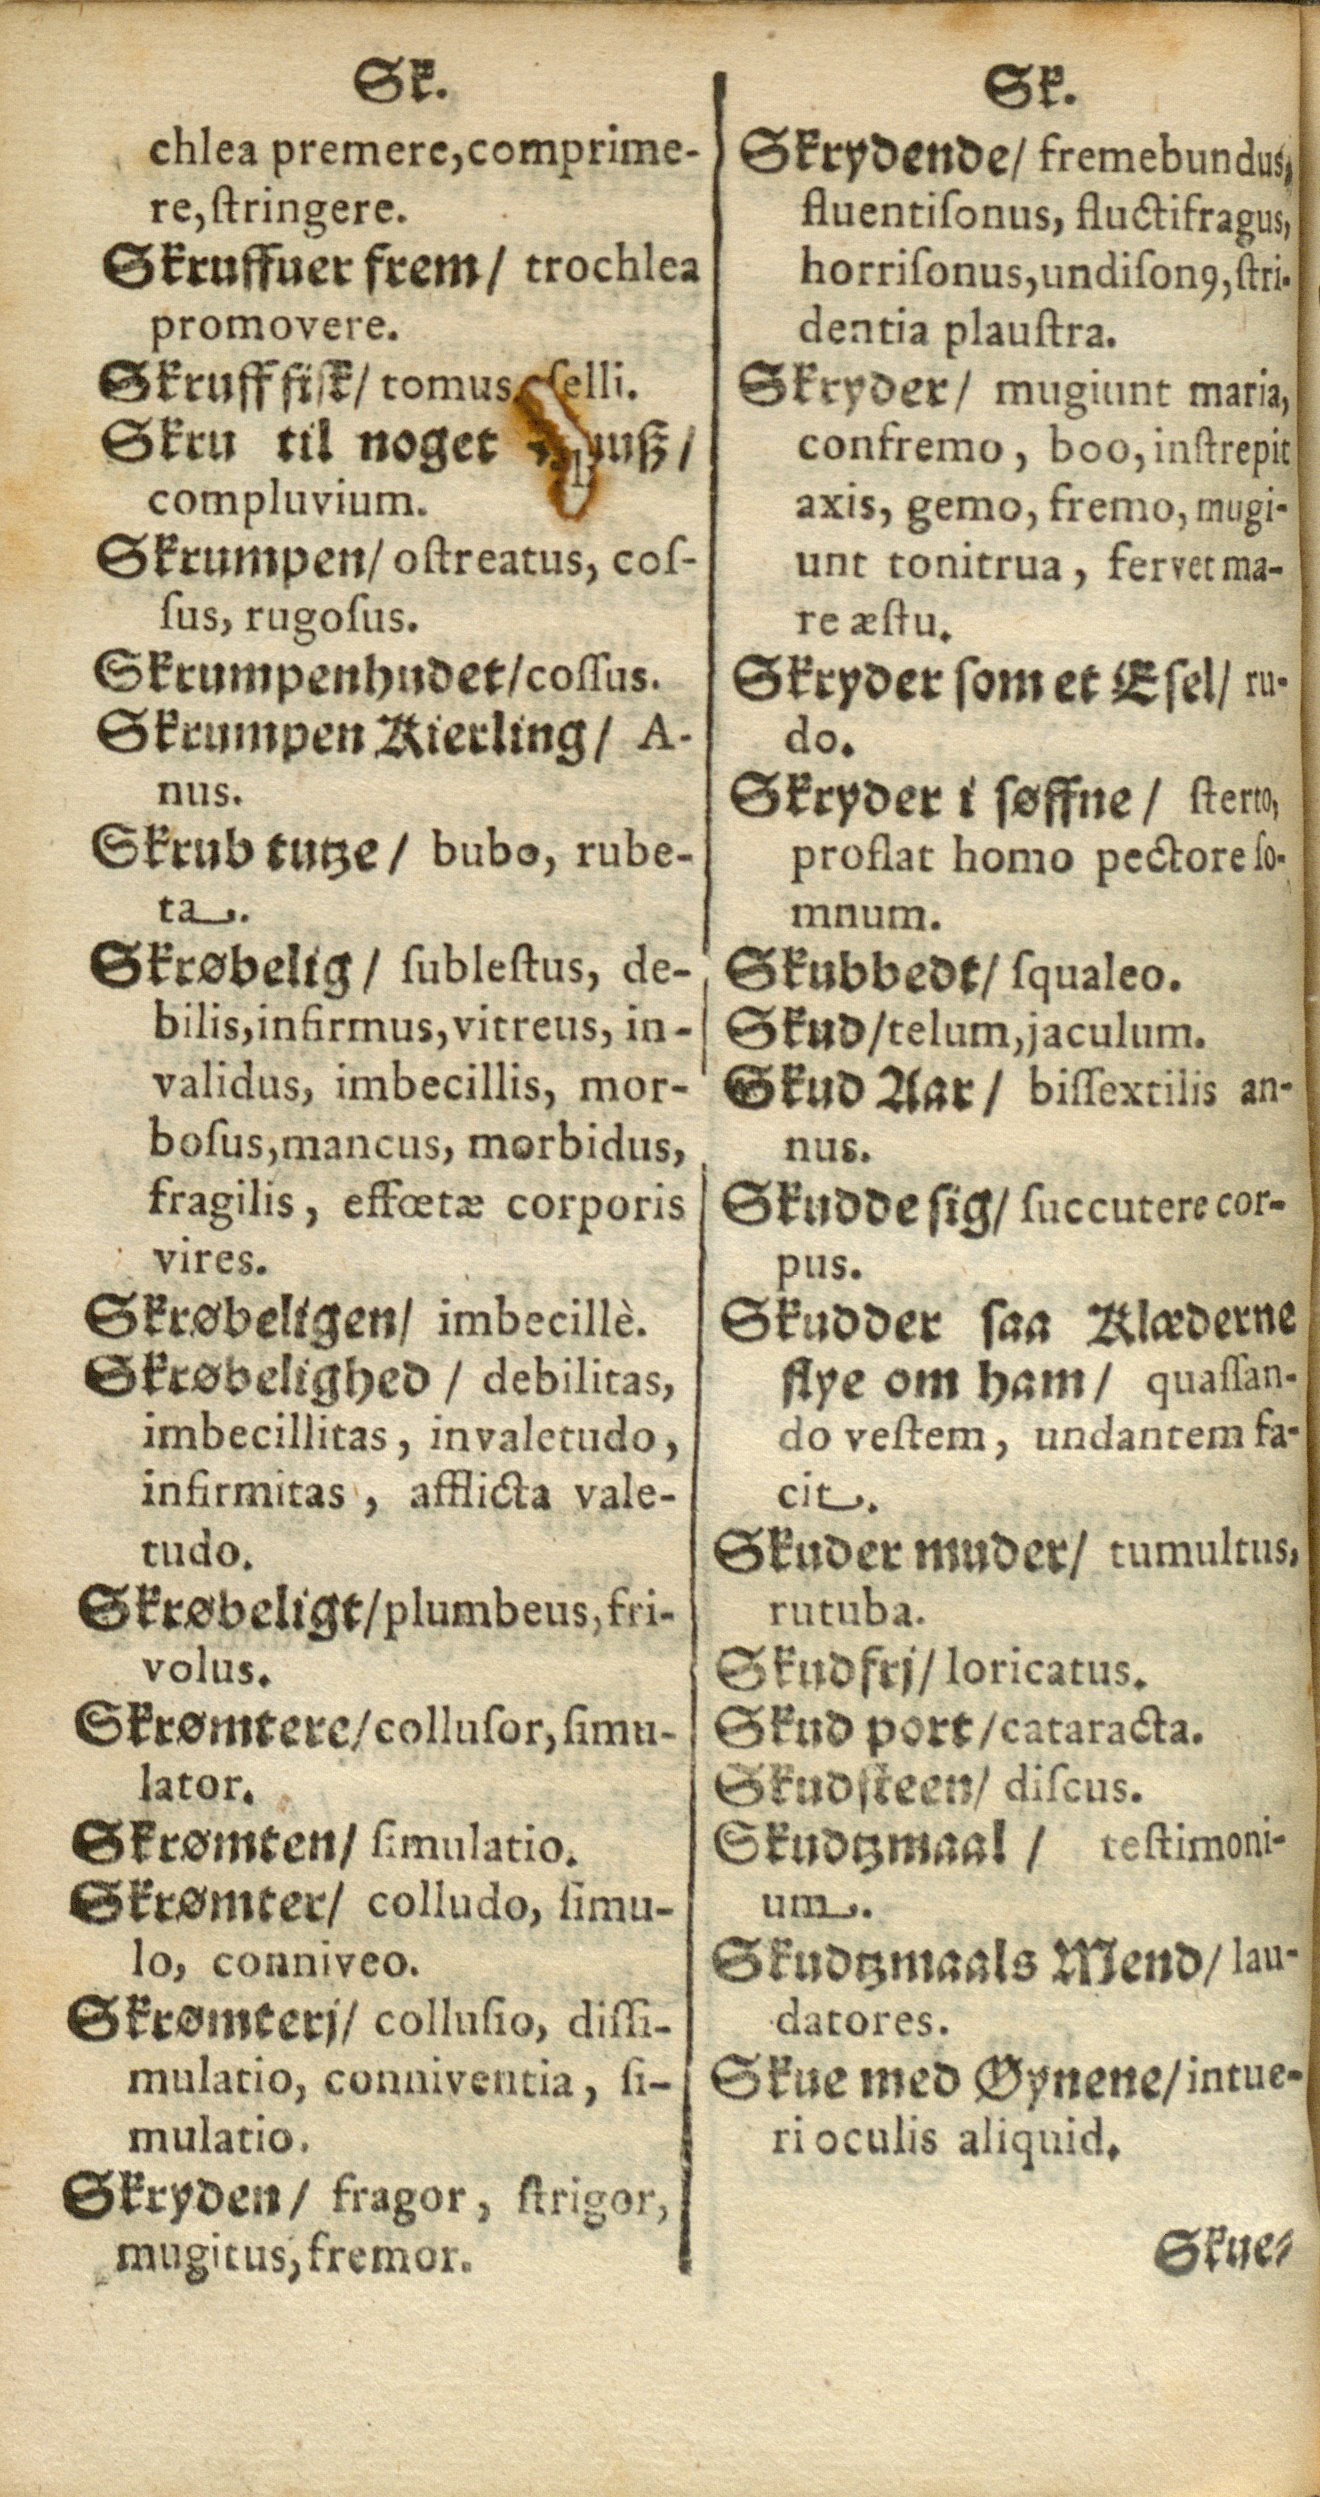 Sk.
chlea premere,comprime-
re,ſtringere.
Skruffuer frem/ trochlea
promovere.
Skruff fiſk/ tomus ſelli.
Skru til noget
compluvium.
Skrumpen/ oſtreatus, coſ-
ſus, rugoſus.
Skrumpenhudet/coſſus.
Skrumpen Kierling/ A-
nus.
Skrub tutze/ bubo, rube-
ta.
Skrøbelig/ ſubleſtus, de-
bilis,infirmus,vitreus, in-
validus, imbecillis, mor-
boſus,mancus, morbidus,
fragilis, effœtæ corporis
vires.
Skrøbeligen/ imbecillè.
Skrøbelighed/ debilitas,
imbecillitas, invaletudo,
infirmitas, afflicta vale-
tudo.
Skrøbeligt/plumbeus,fri-
volus.
Skrømtere/colluſor,ſimu-
lator.
Skrømten/ ſimulatio.
Skrømter/ colludo, ſimu-
lo, conniveo.
Skrømterj/ colluſio, diſſi-
mulatio, conniventia, ſi-
mulatio.
Skryden/ fragor, ſtrigor,
mugitus,fremor.
Sk.
Skrydende/ fremebundus,
fluentiſonus, fluctifragus,
horriſonus,undiſonꝯ,ſtri-
dentia plauſtra.
Skryder/ mugiunt maria,
confremo, boo, inſtrepit
axis, gemo, fremo, mugi-
unt tonitrua, fervet ma-
re æſtu.
Skryder ſom et Eſel/ ru-
do.
Skryder i ſøffne/ ſterto,
proflat homo pectore ſo-
mnum.
Skubbedt/ ſqualeo.
Skud/telum,jaculum.
Skud Aar/ biſſextilis an-
nus.
Skudde ſig/ ſuccutere cor-
pus.
Skudder ſaa Klæderne
flye om ham/ quaſſan-
do veſtem, undantem fa-
cit.
Skuder muder/ tumultus,
rutuba.
Skudfrj/ loricatus.
Skud port/cataracta.
Skudſteen/ diſcus.
Skudtzmaal/ teſtimoni-
um.
Skudtzmaals Mend/ lau-
datores.
Skue med Øynene/intue-
ri oculis aliquid.
Skue-